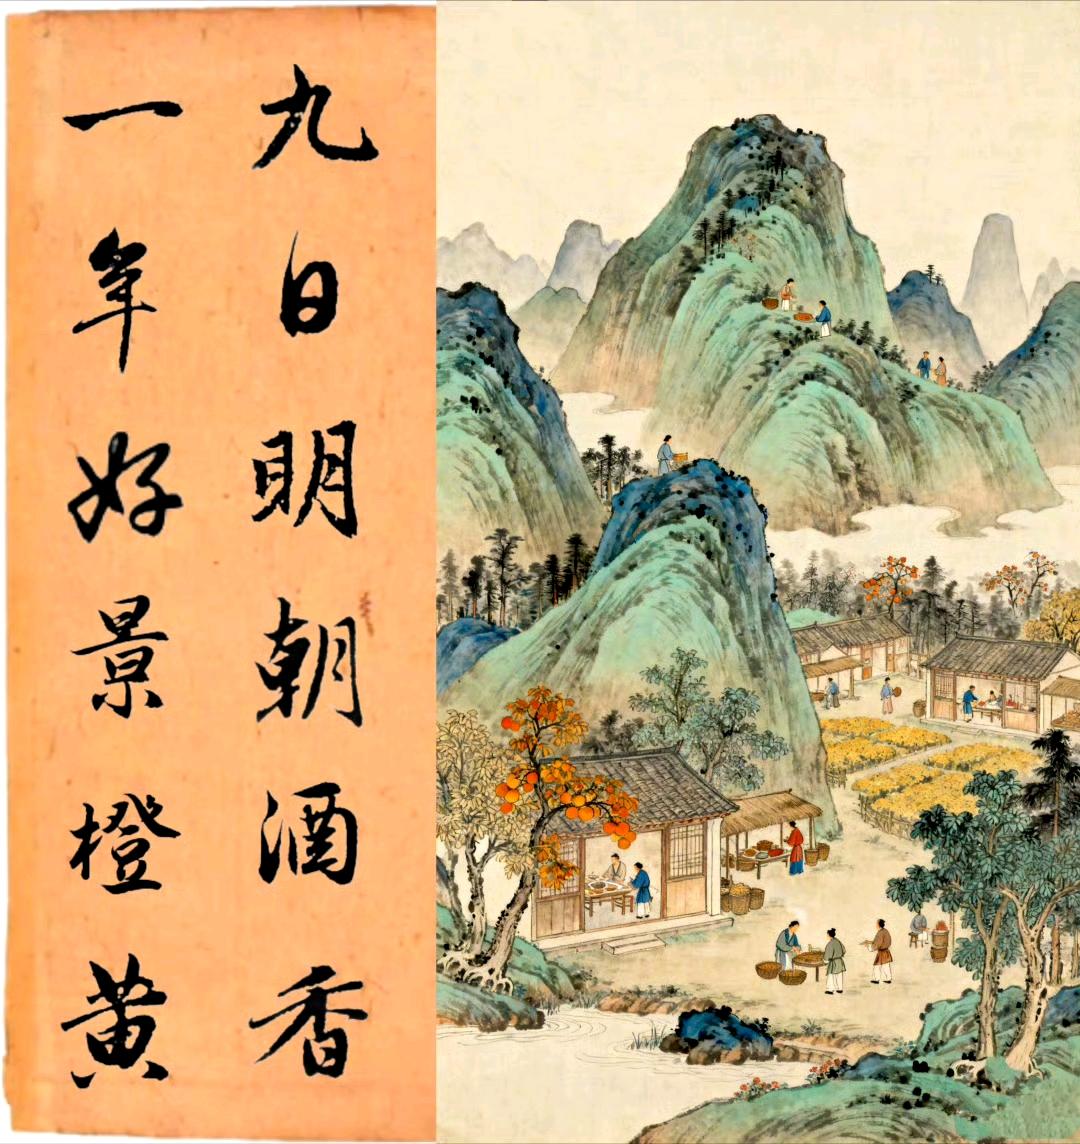 九日明朝酒香
一年好景橙黄